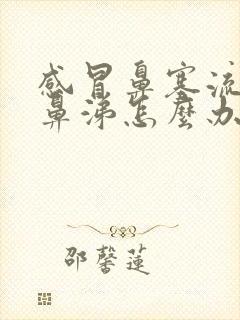 感冒鼻塞流
鼻涕怎麼办
邵馨莲